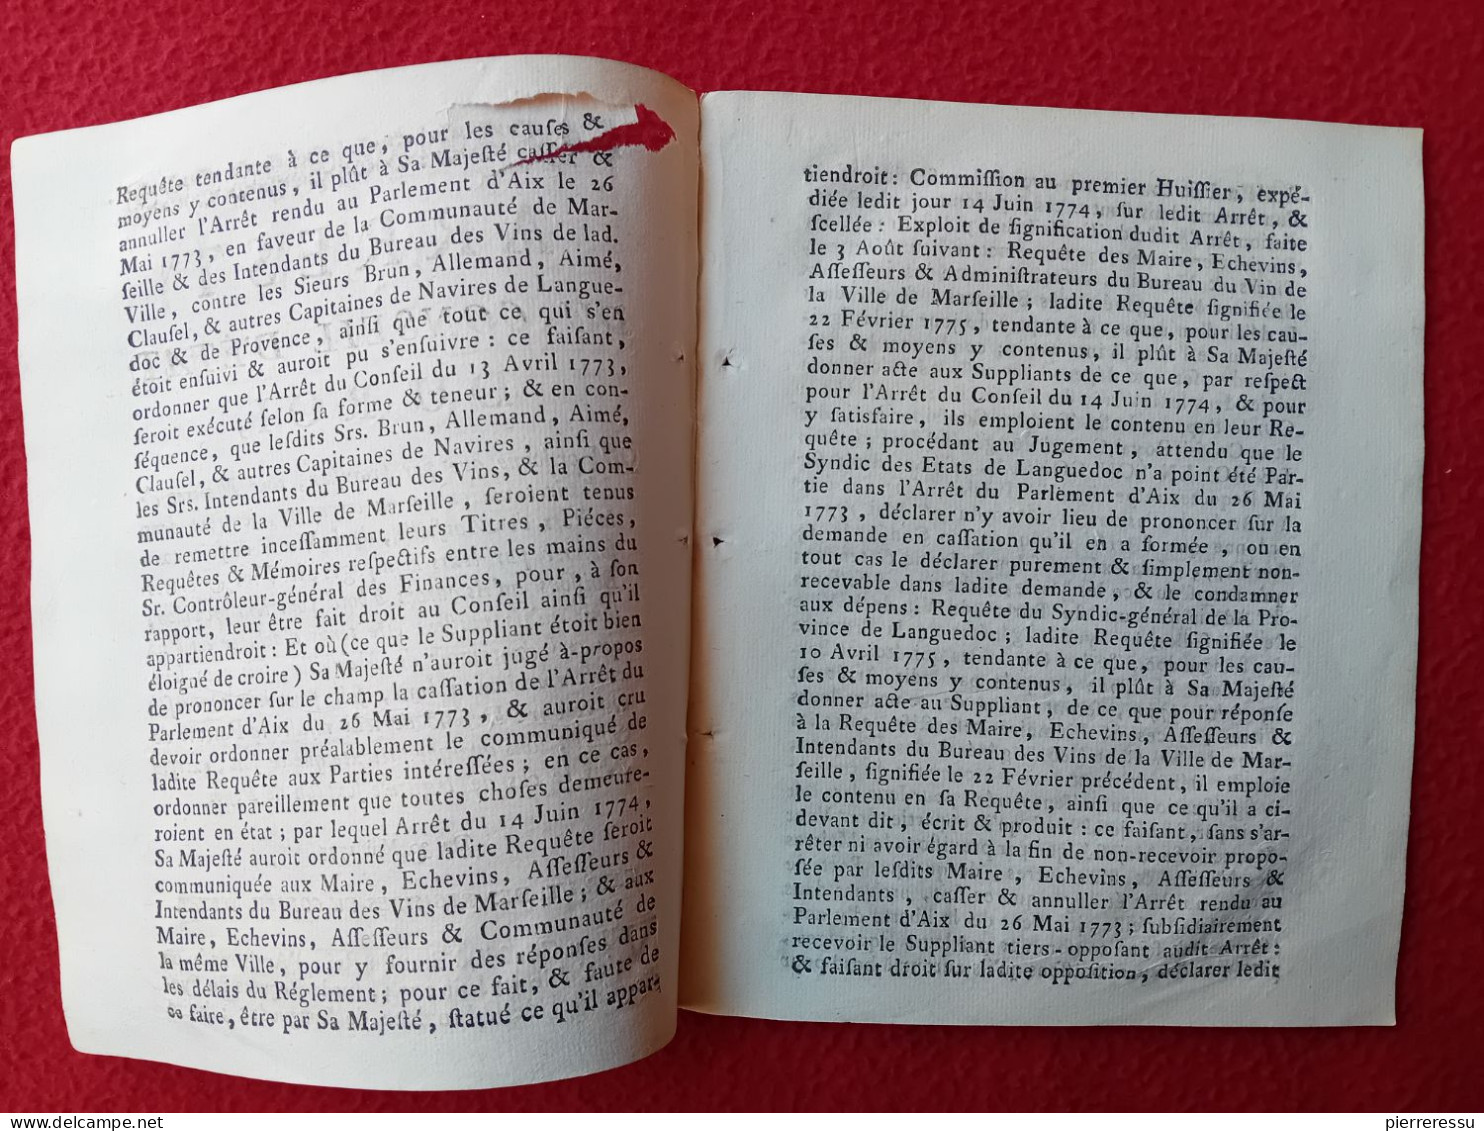 Requête tendante à ce que, pour les cauſes &
moyens y contenus, il plût à Sa Majeſté caſſer &
annuller l'Arrêt rendu au Parlement d'Aix le 26
Mai 1773, en faveur de la Communauté de Mar-
ſeille & des Intendans du Bureau des Vins de lad.
Ville, contre les Sieurs Brun, Allemand, Aimé,
Clauſel, & autres Capitaines de Navires de Langue-
doc & de Provence, ainſi que tout ce qui s'en
étoit enſuivi & auroit pu s'enſuivre : ce faiſant,
ordonner que l'Arrêt du Conſeil du 13 Avril 1773,
ſeroit exécuté ſelon ſa forme & teneur ; & en con-
ſéquence, que leſdits Srs. Brun, Allemand, Aimé,
Clauſel, & autres Capitaines de Navires, ainſi que
les Srs. Intendans du Bureau des Vins, & la Com-
munauté de la Ville de Marſeille, ſeroient tenus
de remettre inceſſamment leurs Titres, Piéces,
Requêtes & Mémoires reſpectifs entre les mains du
Sr. Contrôleur-général des Finances, pour, à ſon
rapport, leur être fait droit au Conſeil ainſi qu'il
appartiendroit : Et où (ce que le Suppliant étoit bien
éloigné de croire) Sa Majeſté n'auroit jugé à-propos
de prononcer ſur le champ la caſſation de l'Arrêt du
Parlement d'Aix du 26 Mai 1773, & auroit cru
devoir ordonner préalablement le communiqué de
ladite Requête aux Parties intéreſſées ; en ce cas,
ordonner pareillement que toutes choſes demeure-
roient en état ; par lequel Arrêt du 14 Juin 1774,
Sa Majeſté auroit ordonné que ladite Requête ſeroit
communiquée aux Maire, Echevins, Aſſeſſeurs &
Intendants du Bureau des Vins de Marſeille ; & aux
Maire, Echevins, Aſſeſſeurs & Communauté de
la même Ville, pour y fournir des réponſes dans
les délais du Réglement ; pour ce fait, & faute de
ce faire, être par Sa Majeſté, ſtatué ce qu'il appar-
tiendroit : Commiſſion au premier Huiſſier, expé-
diée ledit jour 14 Juin 1774, ſur ledit Arrêt, &
ſcellée : Exploit de ſignification dudit Arrêt, faite
le 3 Août ſuivant : Requête des Maire, Echevins,
Aſſeſſeurs & Adminiſtrateurs du Bureau du Vin de
la Ville de Marſeille ; ladite Requête ſignifiée le
22 Février 1775, tendante à ce que, pour les cau-
ſes & moyens y contenus, il plût à Sa Majeſté
donner acte aux Suppliants de ce que, par reſpect
pour l'Arrêt du Conſeil du 14 Juin 1774, & pour
y ſatisfaire, ils emploient le contenu en leur Re-
quête ; procédant au Jugement, attendu que le
Syndic des Etats de Languedoc n'a point été Par-
tie dans l'Arrêt du Parlement d'Aix du 26 Mai
1773, déclarer n'y avoir lieu de prononcer ſur la
demande en caſſation qu'il en a formée, ou en
tout cas le déclarer purement & ſimplement non-
recevable dans ladite demande, & le condamner
aux dépens : Requête du Syndic-général de la Pro-
vince de Languedoc ; ladite Requête ſignifiée le
10 Avril 1775, tendante à ce que, pour les cau-
ſes & moyens y contenus, il plût à Sa Majeſté
donner acte au Suppliant, de ce que pour réponſe
à la Requête des Maire, Echevins, Aſſeſſeurs &
Intendants du Bureau des Vins de la Ville de Mar-
ſeille, ſignifiée le 22 Février précédent, il emploie
le contenu en ſa Requête, ainſi que ce qu'il a ci-
devant dit, écrit & produit : ce faiſant, ſans s'ar-
rêter ni avoir égard à la fin de non-recevoir propo-
ſée par leſdits Maire, Echevins, Aſſeſſeurs &
Intendants, caſſer & annuller l'Arrêt rendu au
Parlement d'Aix du 26 Mai 1773 ; ſubſidiairement
recevoir le Suppliant tiers-oppoſant audit Arrêt :
& faiſant droit ſur ladite oppoſition, déclarer ledit
delcampe.net
pierreressu